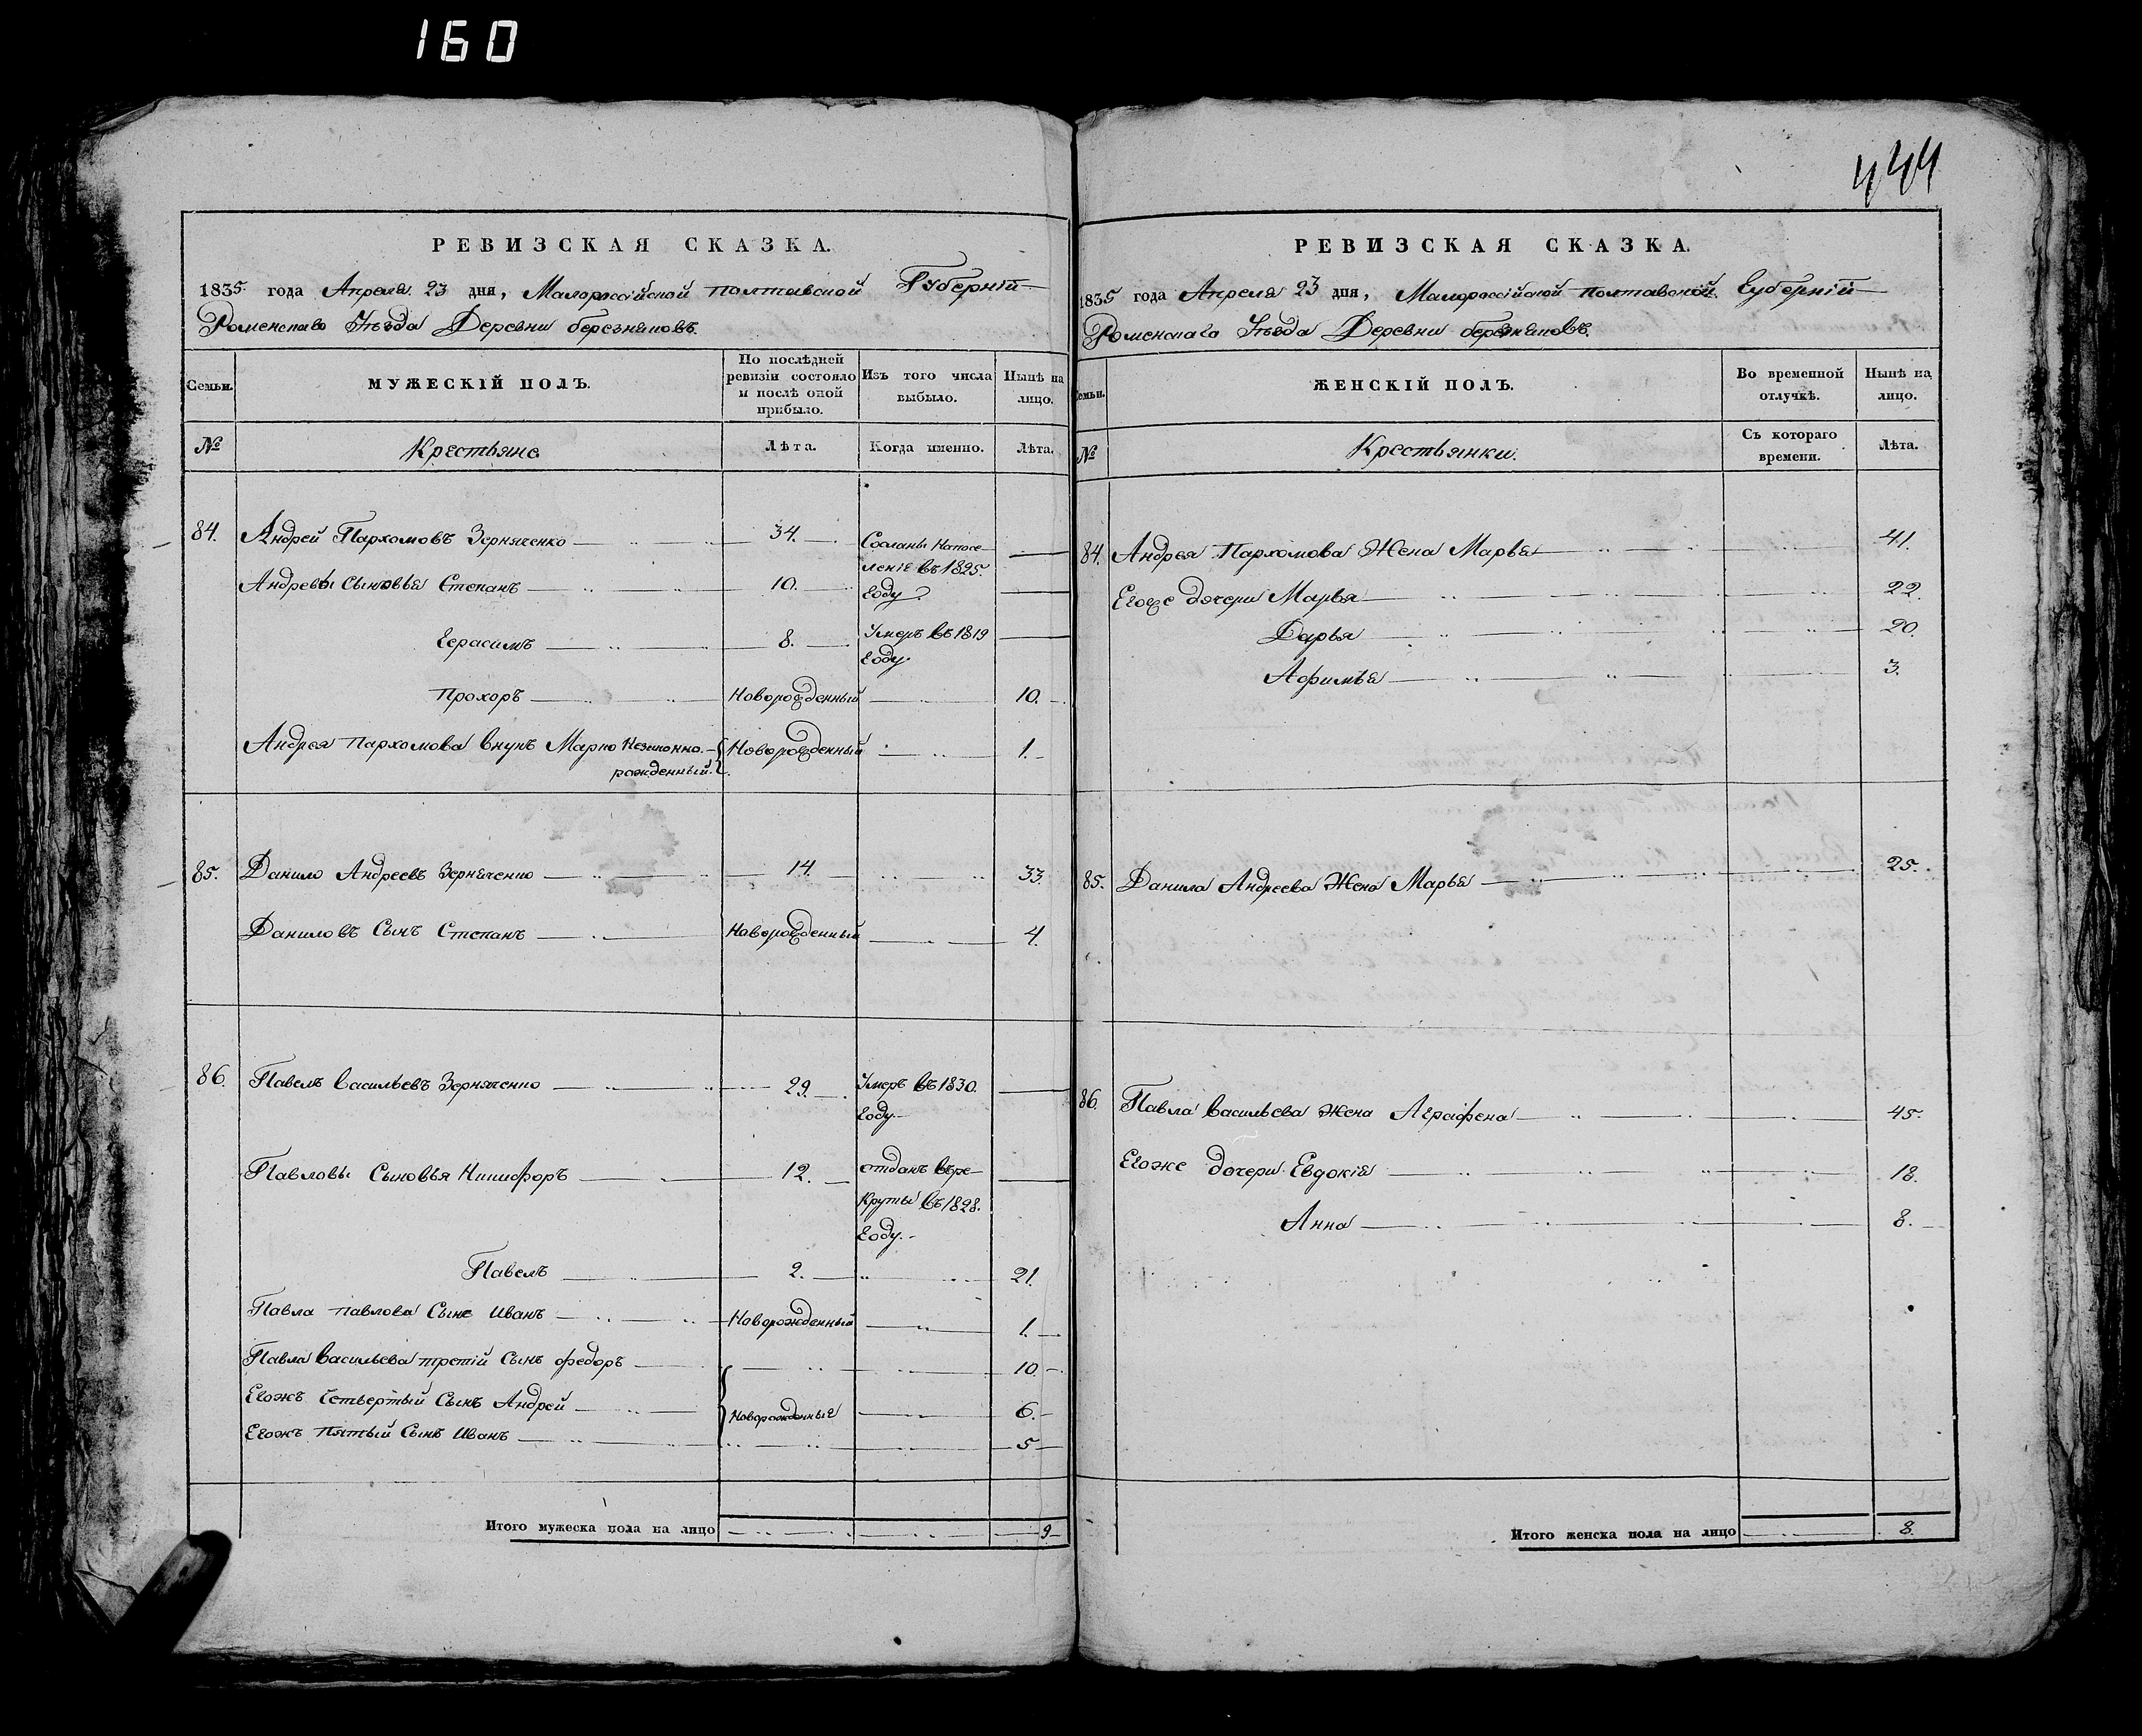 160
444
РЕВИЗСКАЯ СКАЗКА.
1835 года Апреля 23 дня, Малороссійской Полтавской Губерніи
Роменскаго Уѣзда Деревни березняковъ.
Семьи. МУЖЕСКІЙ ПОЛЪ. По послѣдней ревизіи состояло и послѣ оной прибыло. Изъ того числа выбыло. Нынѣ на лицо.
№ Крестьяне Лѣта. Когда именно. Лѣта.
84. Андрей Пархомовъ Зерняченко 34. Сосланы на посе-
леніе въ 1825.
году
Андревы сыновья Степанъ 10.
Герасимъ 8. Умеръ въ 1819
году.
Прохоръ Новорожденный 10.
Андрея Пархомова внукъ Марко Незаконно- Новорожденный 1.
рожденный.
85. Данило Андреевъ Зерняченко 14. 33.
Даниловъ Сынъ Степанъ Новорожденный 4.
86. Павелъ Васильевъ Зерняченко 29. Умеръ въ 1830.
году.
Павловы Сыновья Никифоръ 12. отданъ въ ре-
круты въ 1828.
году.
Павелъ 2. 21.
Павла Павлова Сынъ Иванъ Новорожденный 1.
Павла Васильева третій Сынъ Федоръ 10
Егожъ Четвертый Сынъ Андрей Новорожденныя 6.
Егожъ Пятый Сынъ Иванъ 5
Итого мужеска пола на лицо 9
РЕВИЗСКАЯ СКАЗКА.
1835 года Апреля 23 дня, Малороссійской Полтавской Губерніи
Роменскаго Уѣзда Деревни березняковъ.
Семьи. ЖЕНСКІЙ ПОЛЪ. Во временной отлучкѣ. Нынѣ на лицо.
№ Крестьянки. Съ котораго времени. Лѣта.
84. Андрея Пархомова Жена Марья 41.
Егоже дочери Марья 22.
Дарья 20.
Афимья 3.
85. Данила Андреева Жена Марья 25.
86. Павла Васильева жена Аграфена 45.
Егоже дочери Евдокія 18.
Анна 8.
Итого женска пола на лицо 8.